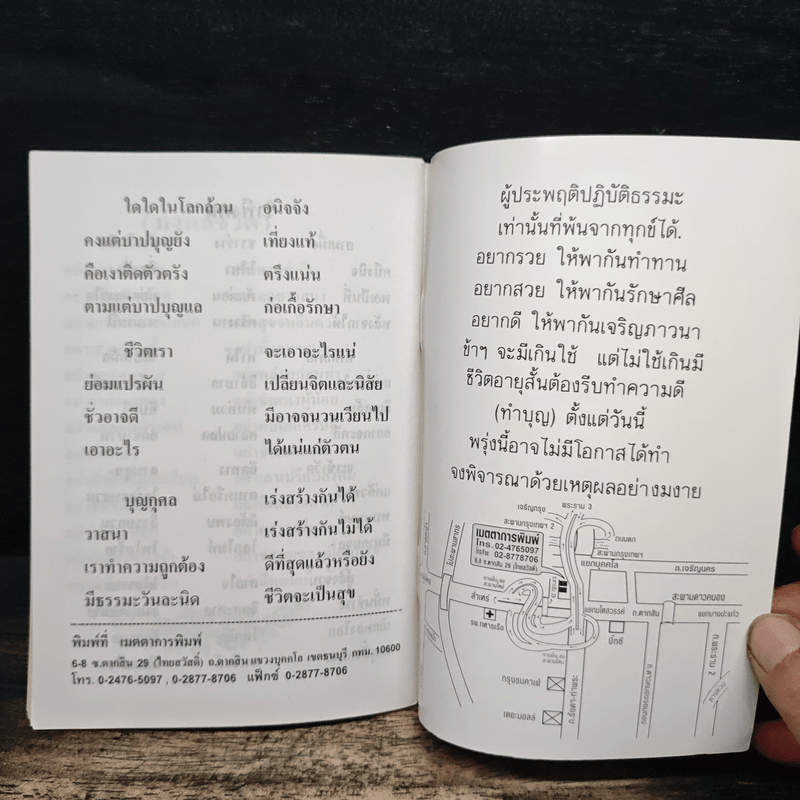 ใดใดในโลกล้วน อนิจจัง
คงแต่บาปบุญยัง เที่ยงแท้
คือเงาติดตัวตรัง ตรึงแน่น
ตามแต่บาปบุญแล ก่อเกื้อรักษา
ชีวิตเรา จะเอาอะไรแน่
ย่อมแปรผัน เปลี่ยนจิตและนิสัย
ชั่วอาจดี มีอาจจนวนเวียนไป
เอาอะไร ได้แน่แก่ตัวตน
บุญกุศล เร่งสร้างกันได้
วาสนา เร่งสร้างกันไม่ได้
เราทำความถูกต้อง ดีที่สุดแล้วหรือยัง
มีธรรมะวันละนิด ชีวิตจะเป็นสุข
พิมพ์ที่ เมตตาการพิมพ์
6-8 ซ.ตากสิน 29 (ไทยสวัสดิ์) ถ.ตากสิน แขวงบุคคโล เขตธนบุรี กทม. 10600
โทร. 0-2476-5097 , 0-2877-8706 แฟ็กซ์ 0-2877-8706
ผู้ประพฤติปฏิบัติธรรมะ
เท่านั้นที่พ้นจากทุกข์ได้.
อยากรวย ให้พากันทำทาน
อยากสวย ให้พากันรักษาศีล
อยากดี ให้พากันเจริญภาวนา
ข้าฯ จะมีเกินใช้ แต่ไม่ใช้เกินมี
ชีวิตอายุสั้นต้องรีบทำความดี
(ทำบุญ) ตั้งแต่วันนี้
พรุ่งนี้อาจไม่มีโอกาสได้ทำ
จงพิจารณาด้วยเหตุผลอย่างมงาย
เจริญกรุง
พระราม 3
สะพานกรุงเทพฯ 2
ถนนตก
สะพานกรุงเทพฯ
เมตตาการพิมพ์
โทร. 02-4765097
02-8778706
6,8 ซ.ตากสิน 29 (ไทยสวัสดิ์)
แยกบุคคโล
ถ.เจริญนคร
สำเหร่
รพ.ทหารเรือ
แยกมไหสวรรค์
บิ๊กซี
ถ.ตากสิน
สะพานดาวคะนอง
แยกบางปะแก้ว
ถ.พระราม 2
กรุงธนคาเฟ่
เดอะมอลล์
ถ.รัชดา-ท่าพระ